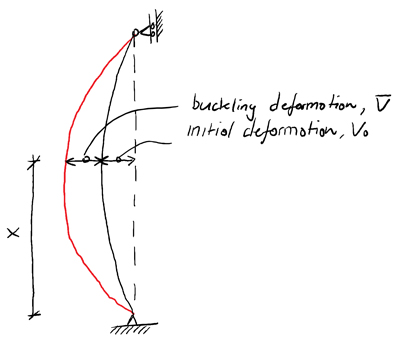 buckling deformation, V̅
initial deformation, V₀
X